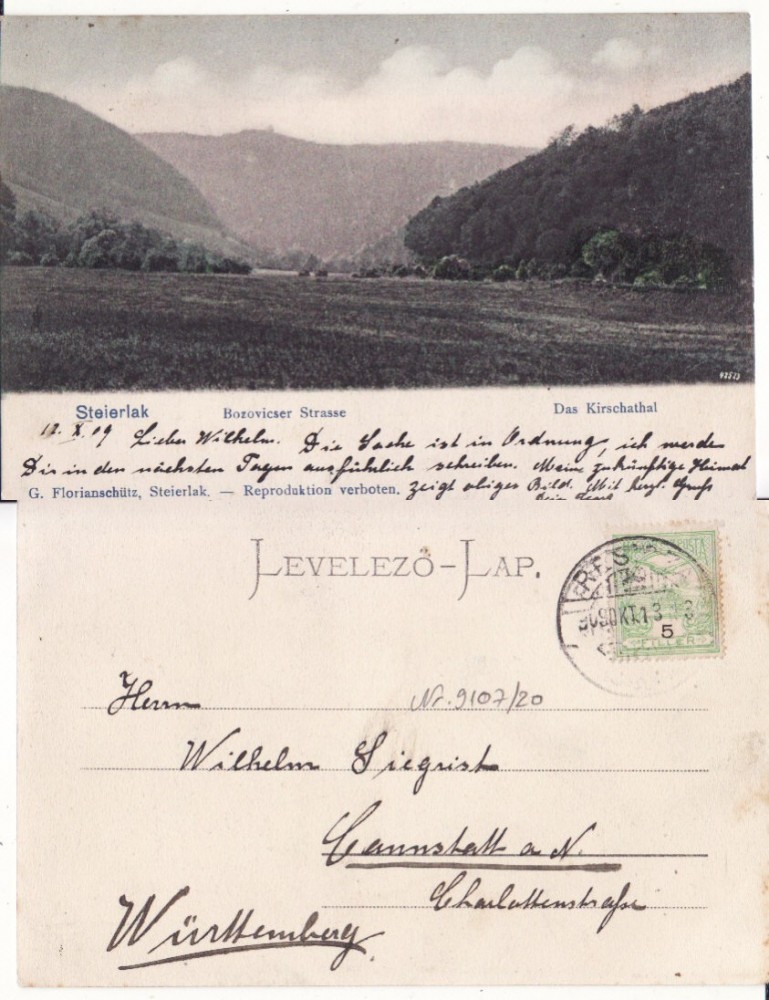 42523
Steierlak Bozovicser Strasse Das Kirschathal
12. X. 09 Lieber Wilhelm. Die Sache ist in Ordnung, ich werde
Dir in den nächsten Tagen ausführlich schreiben. Meine zukünftige Heimat
G. Florianschütz, Steierlak. — Reproduktion verboten. zeigt obiges Bild. Mit herzl. Gruß
Dein
LEVELEZŐ-LAP.
POSTA
RES
909 OKT. 13
5
FILLER
Herrn
Nr. 9107/20
Wilhelm Siegrist
Cannstatt a N.
Charlottenstraße
Württemberg.